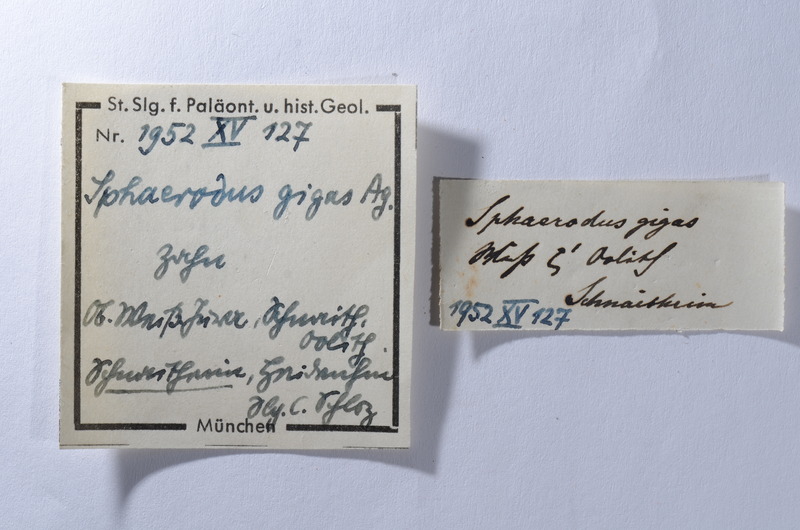 St. Slg. f. Paläont. u. hist. Geol.
Nr. 1952 XV 127
Sphaerodus gigas Ag.
Zahn
Ob. Weißjura, Schnaith.
Oolith
Schnaitheim, Heidenheim
Slg. C. Schloz
München
Sphaerodus gigas
Weiß ζ' Oolith
Schnaitheim
1952 XV 127